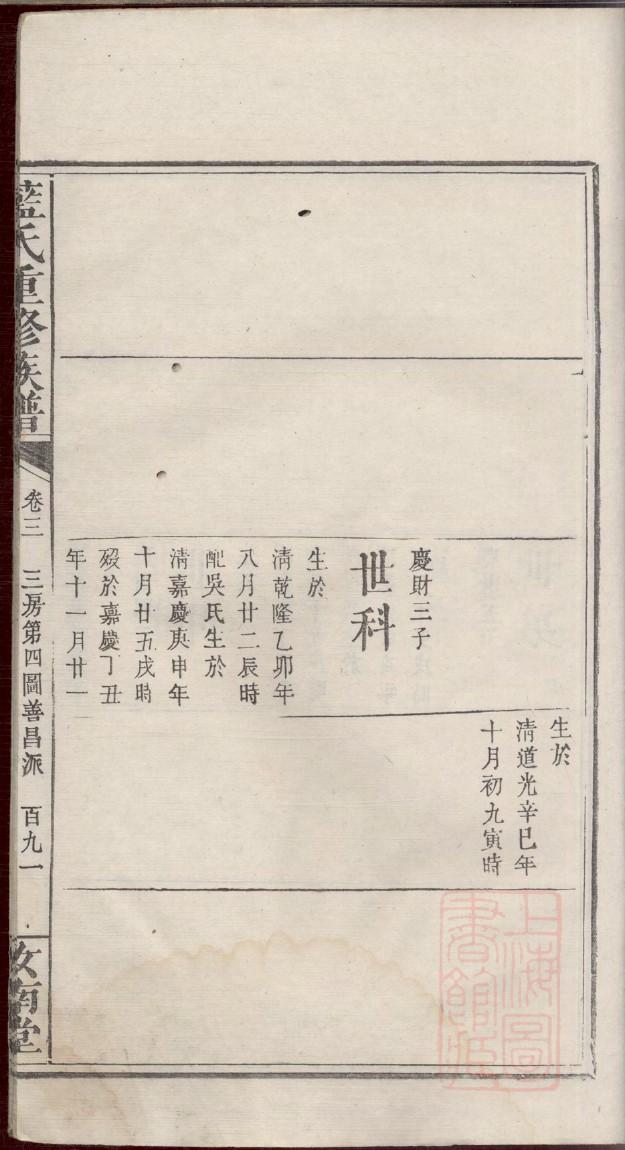 生於
清道光辛巳年
十月初九寅時
慶財三子
世科
生於
清乾隆乙卯年
八月廿二辰時
配吳氏生於
清嘉慶庚申年
十月廿五戌時
歿於嘉慶丁丑
年十一月廿一
藍氏重修族譜
卷三 三房第四圖善昌派 百九一
汝南堂
上海圖
書館藏